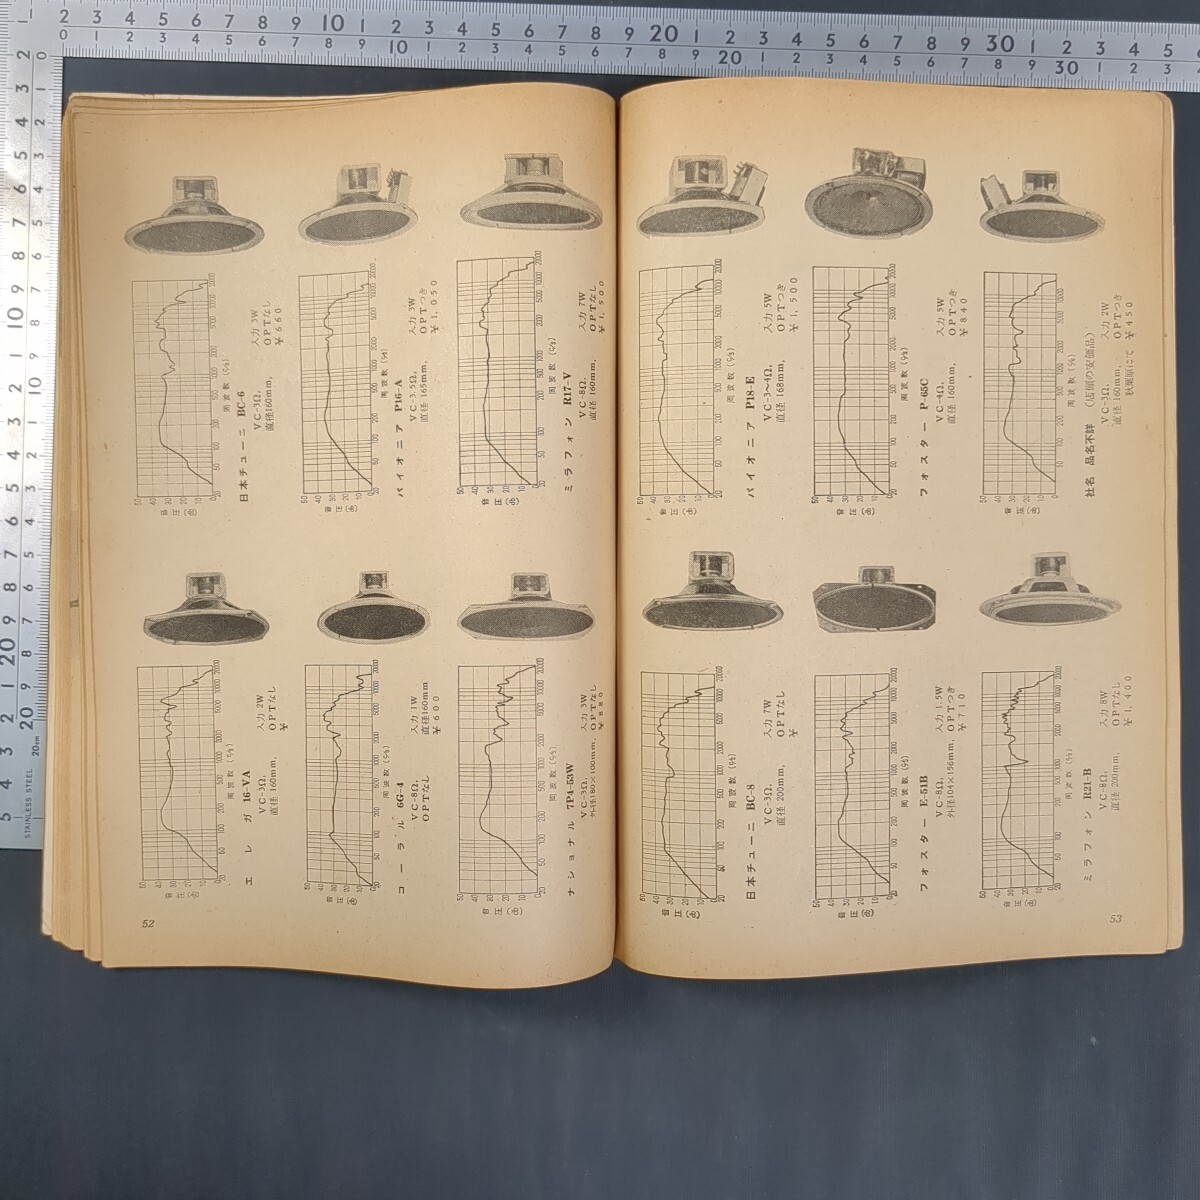 日本チューニ BC-6
VC-3Ω, 入力 3W
直径160mm, OPTなし
¥660
周波数 (c/s)
音圧 (db)
パイオニア P16-A
VC-3.5Ω, 入力 3W
直径 165mm, OPTつき
¥1,050
周波数 (c/s)
音圧 (db)
ミラフォン R17-V
VC-8Ω, 入力 7W
直径 160mm, OPTなし
¥1,500
周波数 (c/s)
音圧 (db)
エレガ 16-VA
VC-3Ω, 入力 2W
直径 160mm, OPTなし
¥
周波数 (c/s)
音圧 (db)
コーラル 6G-4
VC-8Ω, 入力 1W
OPTなし 直径160mm
¥600
周波数 (c/s)
音圧 (db)
ナショナル 7P4-53W
VC-3Ω, 入力 3W
外径180×100mm, OPTなし
¥880
周波数 (c/s)
音圧 (db)
52
パイオニア P18-E
VC-3~4Ω, 入力 5W
直径 168mm, OPTつき
¥1,500
周波数 (c/s)
音圧 (db)
フォスター P-65C
VC-4Ω, 入力 5W
直径 160mm, OPTつき
¥840
周波数 (c/s)
音圧 (db)
社名 品名不詳 (店頭の安価品)
VC-3Ω, 入力 2W
直径 160mm, OPTつき
秋葉原にて ¥450
周波数 (c/s)
音圧 (db)
日本チューニ BC-8
VC-3Ω, 入力 7W
直径 200mm, OPTなし
¥
周波数 (c/s)
音圧 (db)
フォスター E-51B
VC-8Ω, 入力 1.5W
外径104×156mm, OPTつき
¥710
周波数 (c/s)
音圧 (db)
ミラフォン R21-B
VC-8Ω, 入力 8W
直径 200mm, OPTなし
¥1,400
周波数 (c/s)
音圧 (db)
53
20cm
STAINLESS STEEL